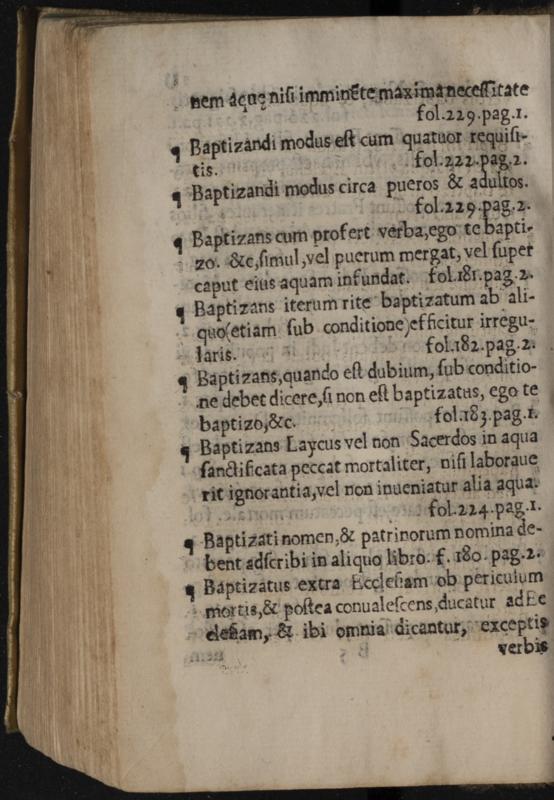 nem aquę nisi imminẽte maxima necessitate
fol.229.pag.1.
¶ Baptizandi modus est cum quatuor requisi-
tis. fol.222.pag.2.
¶ Baptizandi modus circa pueros & adultos.
fol.229.pag.2.
¶ Baptizans cum profert verba,ego te bapti-
zo. &c,simul,vel puerum mergat,vel super
caput eius aquam infundat. fol.181.pag.2.
¶ Baptizans iterum rite baptizatum ab ali-
quo(etiam sub conditione)efficitur irregu-
laris. fol.182.pag.2.
¶ Baptizans,quando est dubium, sub conditio-
ne debet dicere,si non est baptizatus, ego te
baptizo,&c. fol.183.pag.1.
¶ Baptizans Laycus vel non Sacerdos in aqua
sanctificata peccat mortaliter, nisi laboraue
rit ignorantia,vel non inueniatur alia aqua.
fol.224.pag.1.
¶ Baptizati nomen,& patrinorum nomina de-
bent adscribi in aliquo libro. f. 180. pag.2.
¶ Baptizatus extra Ecclesiam ob periculum
mortis,& postea conualescens,ducatur ad Ec
clesiam, & ibi omnia dicantur, exceptis
verbis